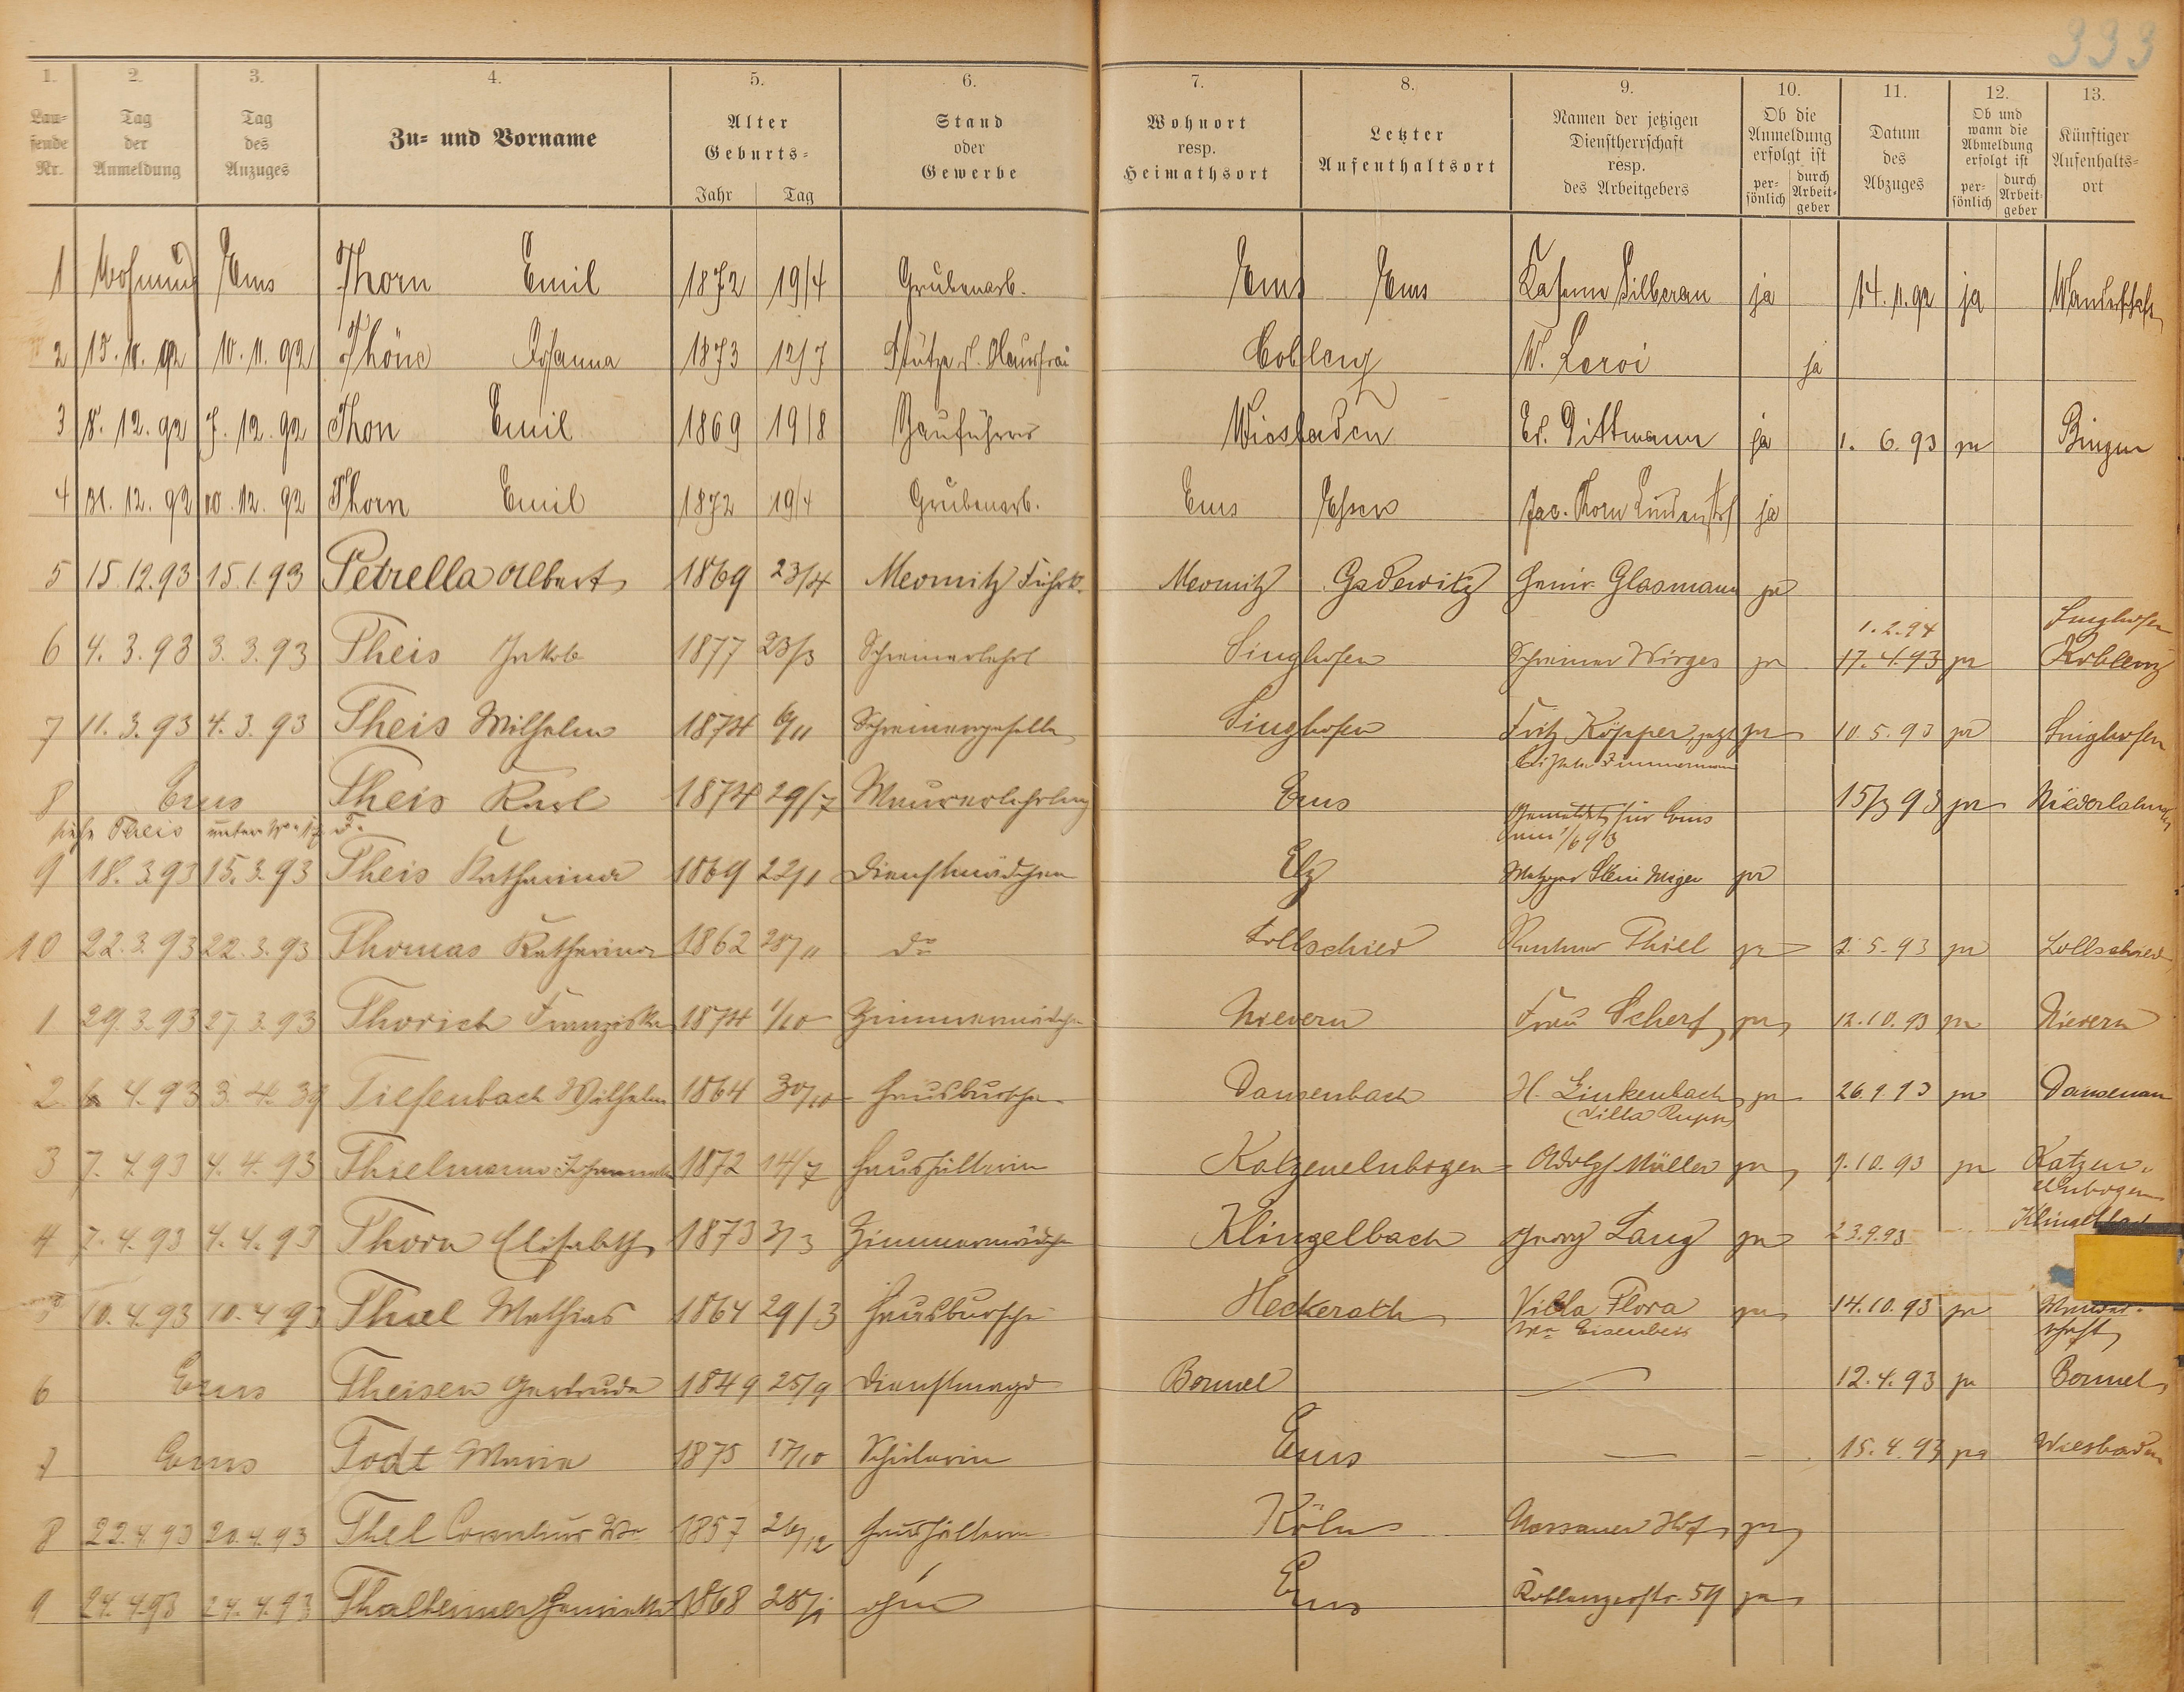 333
1. 2. 3. 4. 5. 6. 7. 8. 9. 10. 11. 12. 13.
Lau=fende Nr. Tag der Anmeldung Tag des Anzuges Zu= und Vorname Alter Geburts= Jahr Tag Stand oder Gewerbe Wohnort resp. Heimathsort Letzter Aufenthaltsort Namen der jetzigen Dienstherrschaft resp. des Arbeitgebers Ob die Anmeldung erfolgt ist per=sönlich durch Arbeit=geber Datum des Abzuges Ob und wann die Abmeldung erfolgt ist per=sönlich durch Arbeit=geber Künftiger Aufenhalts=ort
1 Ems Thorn Emil 1872 19/4 Grubenarb. Ems Ems Silberau ja 14.11.92 ja Wanderschaft
2 15.11.92 10.11.92 Thöne Johanna 1873 12/7 Stütze d. Hausfrau Coblenz W. Leroi ja
3 8.12.92 7.12.92 Thon Emil 1869 19/8 Bauführer Wiesbaden Ed. Dittmann ja 1.6.93 ja Bingen
4 31.12.92 12.92 Thorn Emil 1872 19/4 Grubenarb. Ems Essen Jac. Thorn ja
5 15.12.93 15.1.93 Petrella Albert 1869 23/4 Meomitz Meomitz Gadewitz Glasmann ja
1.2.94 Singhofen
6 4.3.93 3.3.93 Theis Jakob 1877 23/3 Schreinerlehrl Singhofen Schreiner Wirges ja 17.4.93 ja Koblenz
7 11.3.93 4.3.93 Theis Wilhelm 1874 6/11 Schreinergeselle Singhofen Fritz Köpper jetzt ja 10.5.93 ja Singhofen
Zimmermann
8 Ems Theis Karl 1874 29/7 Maurerlehrling Ems 15/3 93 ja Niederlahnstein
siehe Theis unter No 17 F. Gemeldet für Ems
9 18.3.93 15.3.93 Theis Katharina 1869 22/1 Dienstmädchen Elz Metzger ja
10 22.3.93 22.3.93 Thomas Katharina 1862 28/11 do Lollschied Rentner Thiel ja 2.5.93 ja Lollschied
1 29.3.93 27.3.93 Thorich Franziska 1874 1/10 Zimmermädchen Nievern Frau Scherf ja 12.10.93 ja Nievern
2 4.93 3.4.39 Tiefenbach Wilhelm 1864 30/10 Hausbursche Dausenbach H. Linkenbach ja 26.9.93 ja Dausenau
(Villa Rupp)
3 7.4.93 4.4.93 Thielmann 1872 14/7 Haushälterin Katzenelnbogen Adolf Müller ja 9.10.93 ja Katzen-
elnbogen
4 7.4.93 4.4.93 Thorn Elisabeth 1873 3/3 Zimmermädchen Klingelbach Georg Lang ja 23.9.93 Klingelbach
5 10.4.93 10.4.93 Thiel Mathias 1864 29/3 Hausbursche Heckerath Villa Flora ja 14.10.93 ja Wander-
Eisenbeis schaft
6 Ems Theisen Gertruda 1849 25/9 Dienstmagd Bornel — 12.4.93 ja Bornel
7 Ems Todt Maria 1875 17/10 Schülerin Ems — — 15.4.93 ja Wiesbaden
8 22.4.93 20.4.93 Thel Cornelius Ww 1857 26/12 Haushälterin Köln Nassauer Hof ja
9 24.4.93 24.4.93 Thalheimer 1868 28/1 ohne Ems Koblenzerstr. 59 ja